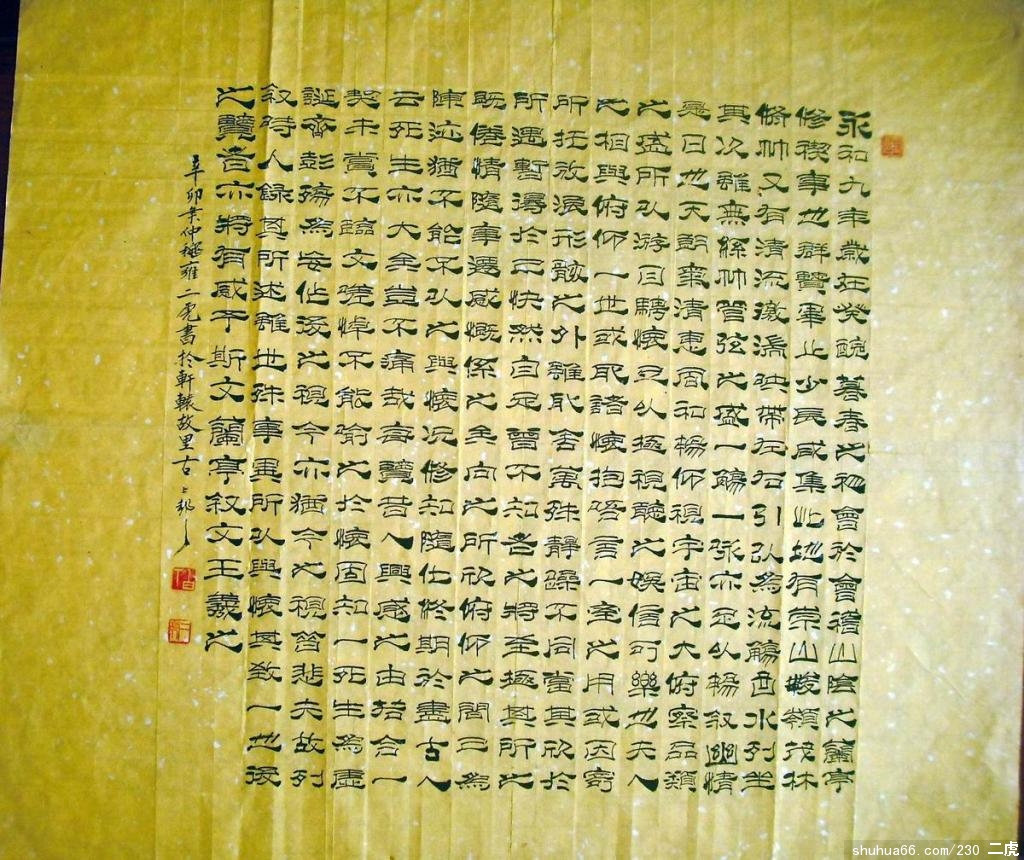 永和九年歲在癸醜暮春之初會於會稽山陰之蘭亭
修禊事也群賢畢止少長咸集此地有崇山峻嶺茂林
脩竹又有清流激湍映帶左右引以為流觴曲水列坐
其次雖無絲竹管弦之盛一觴一詠亦足以暢敘幽情
是日也天朗氣清惠風和暢仰視宇宙之大俯察品類
之盛所以游目騁懷足以極視聽之娛信可樂也夫人
之相與俯仰一世或取諸懷抱晤言一室之内或因寄
所托放浪形骸之外雖取舍萬殊靜躁不同當其欣於
所遇暫得於己快然自足曾不知老之將至極其所之
既倦情隨事遷感慨係之矣向之所欣俯仰之間已為
陳迹猶不能不以之興懷況修短隨化終期於盡古人
云死生亦大矣豈不痛哉每覽昔人興感之由若合一
契未嘗不臨文嗟悼不能喻之於懷固知一死生為虛
誕齊彭殤為妄作後之視今亦猶今之視昔悲夫故列
敘時人錄其所述雖世殊事異所以興懷其致一也後
之覽者亦將有感于斯文蘭亭敘文王羲之
辛卯年仲秋雍二虎書於軒轅故里古
shuhua66.com/230 二虎